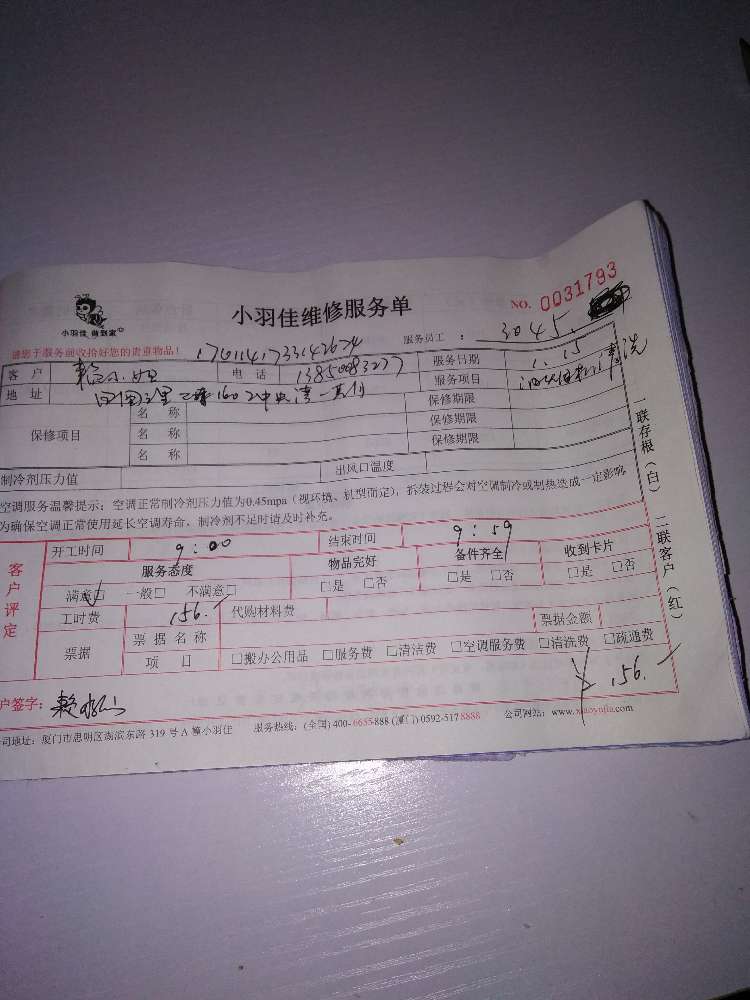 小羽佳 做到家
小羽佳维修服务单
NO. 0031793
服务员工 : 3045.
请您于服务前收拾好您的贵重物品!
客 户 赖小姐 电 话 服务日期 1.15
地 址 1602 服务项目 油烟机清洗
保修项目 名 称 保修期限
名 称 保修期限
名 称 保修期限
制冷剂压力值 出风口温度
空调服务温馨提示:空调正常制冷剂压力值为0.45mpa(视环境、机型而定),拆装过程会对空调制冷或制热造成一定影响
为确保空调正常使用延长空调寿命,制冷剂不足时请及时补充。
一联存根(白) 二联客户(红)
客户评定
开工时间 9:00 结束时间 9:59
服务态度 物品完好 备件齐全 收到卡片
满意☑ 一般□ 不满意□ □是 □否 □是 □否 □是 □否
工时费 156. 代购材料费
票据 票据名称 票据金额
项 目 □搬办公用品 □服务费 □清洁费 □空调服务费 □清洗费 □疏通费
¥156.
户签字:赖
司地址:厦门市思明区湖滨东路319号A幢小羽佳 服务热线:(全国)400-6655888 (厦门)0592-5178888 公司网站:www.xiaoyujia.com